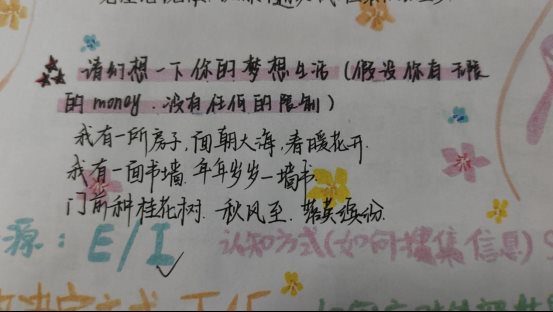 请幻想一下你的梦想生活（假设你有无限
的money.没有任何的限制）
我有一所房子,面朝大海,春暖花开.
我有一面书墙.年年岁岁一墙书.
门前种桂花树.秋风至.落英缤纷.
源：E/I
认知方式(如何搜集信息) S